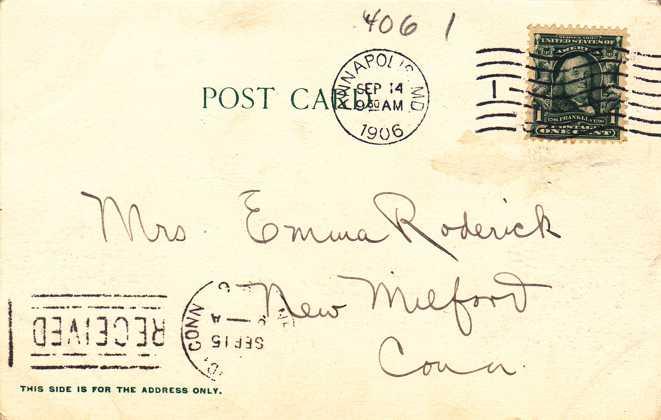 406 1
SERIES 1902
UNITED STATES OF
AMERICA
POST CARD
ANNAPOLIS, MD.
SEP 14
930 AM
1906
1
1
FRANKLIN
POSTAGE
ONE CENT
Mrs. Emma Roderick
New Milford
Conn.
RECEIVED
CONN
SEP 15
A
THIS SIDE IS FOR THE ADDRESS ONLY.